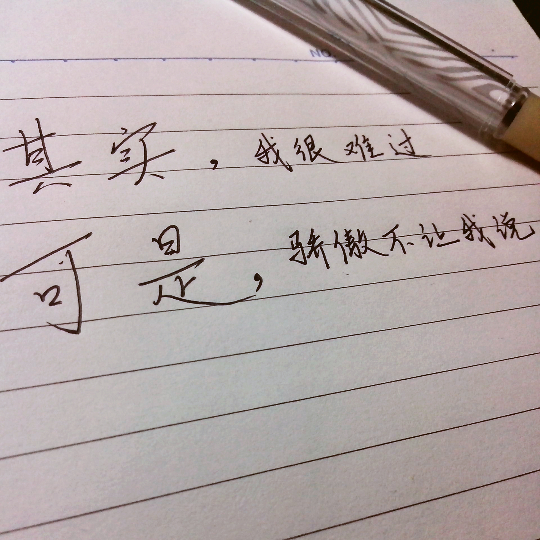 NO
其实，我很难过
可是，骄傲不让我说